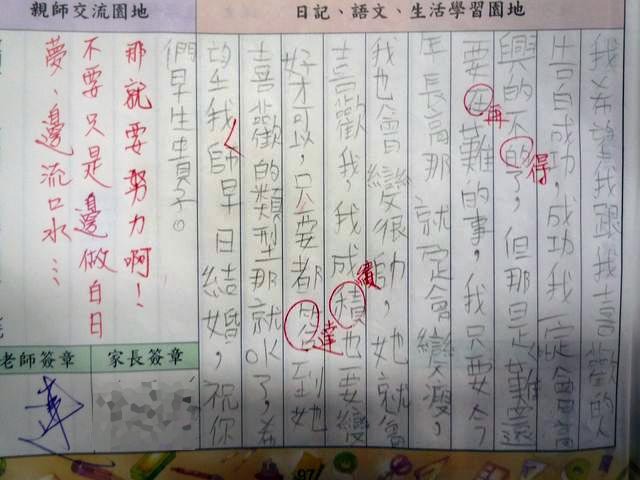 日記、語文、生活學習園地
我希望我跟我喜歡的人
告白成功,成功我一定會
興的不的了,但那是 難還
得
要在難的事,我只要今
再
年長高那就定會變瘦,
我也會變很帥,她就會
喜歡我,我成積也要變
績
好才可以,只要都 到她
達
喜歡的類型那就OK了,希
望我帥早日結婚,祝你
們早生貴子。
親師交流園地
那就要努力啊!
不要只是邊做白日
夢、邊流口水…
老師簽章
家長簽章